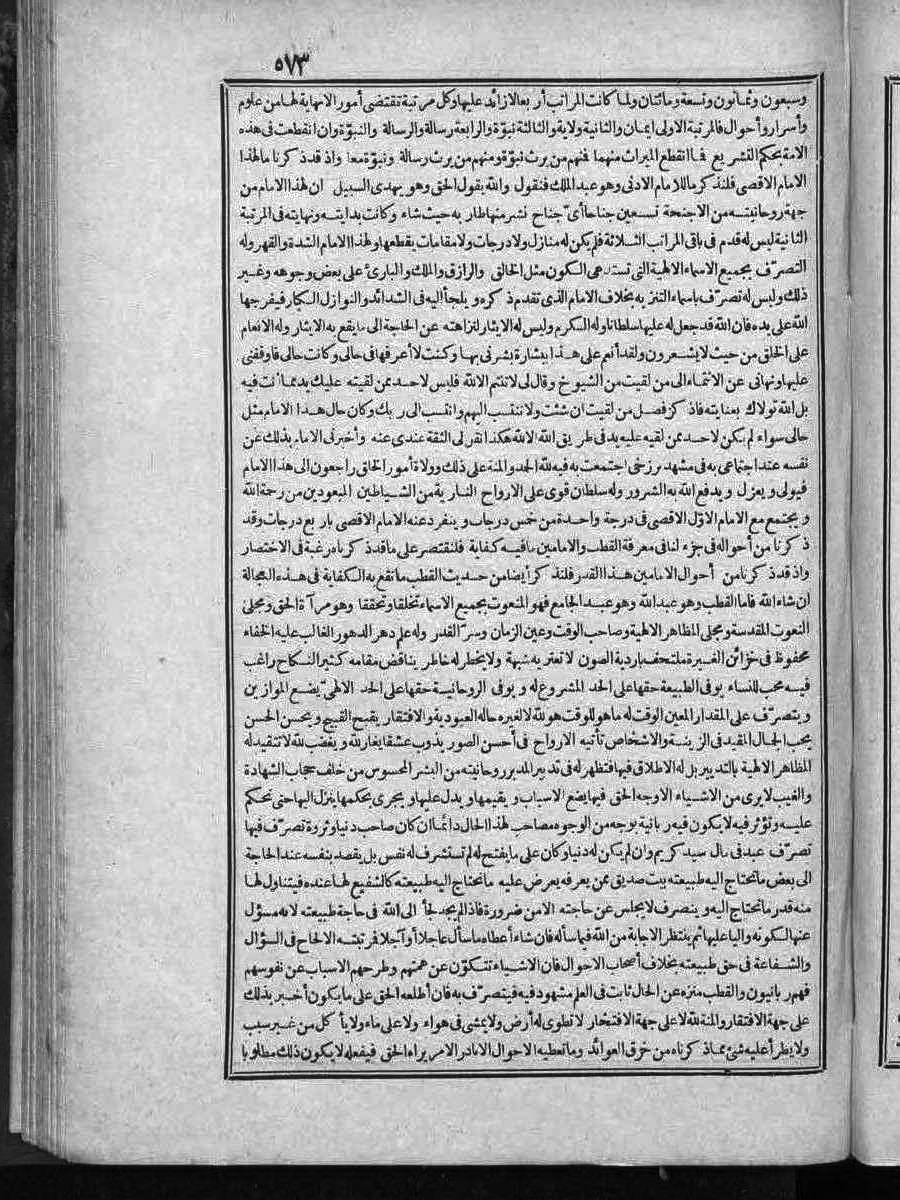 ٥٧٣
وسبعون وثمانون وتسعة ومائتان ولما كانت المراتب أربعا لا زائد عليها وكل مرتبة تقتضى أمور الانهاية لها من علوم
وأسرار وأحوال فالمرتبة الاولى ايمان والثانية ولاية والثالثة نبوّة والرابعة رسالة والرسالة والنبوّة وان انقطعت فى هذه
الامة بحكم التشريع فما انقطع الميراث منهما فمنهم من يرث نبوّة ومنهم من يرث رسالة ونبوّة معا واذ قد ذكرنا مالهذا
الامام الاقصى فلنذكر ما للامام الادنى وهو عبد الملك فنقول والله يقول الحق وهو يهدى السبيل ان لهذا الامام من
جهة روحانيته من الاجنحة تسعين جناحا أىّ جناح نشر منها طار به حيث شاء وكانت بدايته ونهايته فى المرتبة
الثانية ليس له قدم فى باقى المراتب الثلاثة فلم يكن له منازل ولا درجات ولا مقامات يقطعها ولهذا الامام الشدة والقهر وله
التصرّف بجميع الاسماء الالهية التى تستدعى الكون مثل الخالق والرازق والملك والبارئ على بعض وجوهه وغير
ذلك وليس له تصرّف باسماء التنزيه بخلاف الامام الذى تقدم ذكره ويلجأ اليه فى الشدائد والنوازل الكبار فيفرجها
الله على يده فان الله قد جعل له عليها سلطانا وله الكرم وليس له الايثار لنزاهته عن الحاجة الى ما يقع به الايثار وله الانعام
على الخلق من حيث لا يشعرون ولقد أنعم على هذا ببشارة بشرنى بها وكنت لا أعرفها فى حالى وكانت حالى فاوقفنى
عليها ونهانى عن الانتماء الى من لقيت من الشيوخ وقال لى لا تنتم الا لله فليس لاحد ممن لقيته عليك يد مما أنت فيه
بل الله تولاك بعنايته فاذكر فضل من لقيت ان شئت ولا تنتسب اليهم وانتسب الى ربك وكان حال هذا الامام مثل
حالى سواء لم يكن لاحد ممن لقيه عليه يد فى طريق الله الا لله هكذا نقل لى الثقة عندى عنه وأخبرنى الامام بذلك عن
نفسه عند اجتماعى به فى مشهد برزخى اجتمعت به فيه لله الحمد والمنة على ذلك وولاة أمور الخلق راجعون الى هذا الامام
فيولى ويعزل ويدفع الله به الشرور وله سلطان قوى على الارواح النارية من الشياطين المبعودين من رحمة الله
ويجتمع مع الامام الاوّل الاقصى فى درجة واحدة من خمس درجات وينفرد عنه الامام الاقصى باربع درجات وقد
ذكرنا من أحواله فى جزء لنا فى معرفة القطب والامامين ما فيه كفاية فلنقتصر على ما قد ذكرناه رغبة فى الاختصار
واذ قد ذكرنا من أحوال الامامين هذا القدر فلنذكر أيضا من حديث القطب ما تقع به الكفاية فى هذه العجالة
ان شاء الله فاما القطب وهو عبد الله وهو عبد الجامع فهو المنعوت بجميع الاسماء تخلقا وتحققا وهو مرآة الحق ومجلى
النعوت المقدسة ومجلى المظاهر الالهية وصاحب الوقت وعين الزمان وسرّ القدر وله علم دهر الدهور الغالب عليه الخفاء
محفوظ فى خزائن الغيرة ملتحف باردية الصون لا تعتريه شبهة ولا يخطر له خاطر يناقض مقامه كثير النكاح راغب
فيه محب للنساء يوفى الطبيعة حقها على الحد المشروع له ويوفى الروحانية حقها على الحد الالهىّ يضع الموازين
ويتصرّف على المقدار المعين الوقت له ما هو للوقت هو لله لا لغيره حاله العبودية والافتقار يقبح القبيح ويحسن الحسن
يحب الجمال المقيد فى الزينة والاشخاص تأتيه الارواح فى أحسن الصور يذوب عشقا يغار لله ويغضب لله لا تتقيد له
المظاهر الالهية بالتدبير بل له الاطلاق فيها فتظهر له فى تدبير المدبر روحانيته من البشر المحسوس من خلف حجاب الشهادة
والغيب لا يرى من الاشياء الا وجه الحق فيها يضع الاسباب ويقيمها ويدل عليها ويجرى بحكمها ينزل اليها حتى تحكم
عليه وتؤثر فيه لا يكون فيه ربانية بوجه من الوجوه مصاحب لهذا الحال دائما ان كان صاحب دنيا وثروة تصرّف فيها
تصرّف عبد فى مال سيد كريم وان لم يكن له دنيا وكان على ما يفتح له لم تستشرف له نفس بل يقصد بنفسه عند الحاجة
الى بعض ما تحتاج اليه طبيعته بيت صديق ممن يعرفه يعرض عليه ما تحتاج اليه طبيعته كالشفيع لها عنده فيتناول لها
منه قدر ما تحتاج اليه وينصرف لا يجلس عن حاجته الا من ضرورة فاذا لم يجد لجأ الى الله فى حاجة طبيعته لانه مسؤل
عنها لكونه واليا عليها ثم ينتظر الاجابة من الله فيما سأله فان شاء أعطاه ما سأل عاجلا أو آجلا فمرتبته الالحاح فى السؤال
والشفاعة فى حق طبيعته بخلاف أصحاب الاحوال فان الاشياء تتكوّن عن همتهم وطرحهم الاسباب عن نفوسهم
فهم ربانيون والقطب منزه عن الحال ثابت فى العلم مشهود فيه فيتصرّف به فان أطلعه الحق على ما يكون أخبر بذلك
على جهة الافتقار والمنة لله لا على جهة الافتخار لا تطوى له أرض ولا يمشى فى هواء ولا على ماء ولا يأكل من غير سبب
ولا يطرأ عليه شئ مما ذكرناه من خرق العوائد وما تعطيه الاحوال الا نادر الامر يراه الحق فيفعله لا يكون ذلك مطلوبا